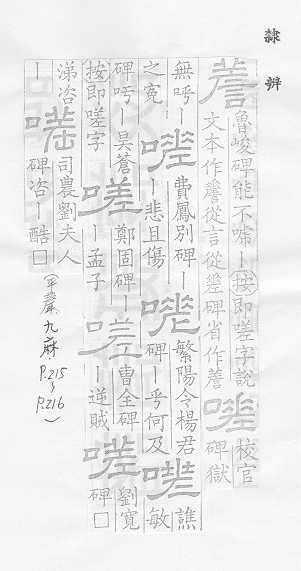 隸辨
魯峻碑能不嗁ー按即嗟字說
文本作𧪘從言從𠂹碑省作 嗟 校官
碑獄
無呼ー 嗟 費鳳別碑ー 嗟 繁陽令楊君 嗟 譙
之寃 ー悲且傷 碑ー乎何及 敏
碑吁ー昊蒼 嗟 鄭固碑ー 嗟 曹全碑ー 嗟 劉寬
按即嗟字 ー孟子 ー逆賊 碑□
涕咨 嗟 司農劉夫人
ー 碑咨ー酷□
(平聲 九麻 P.215~P.216)